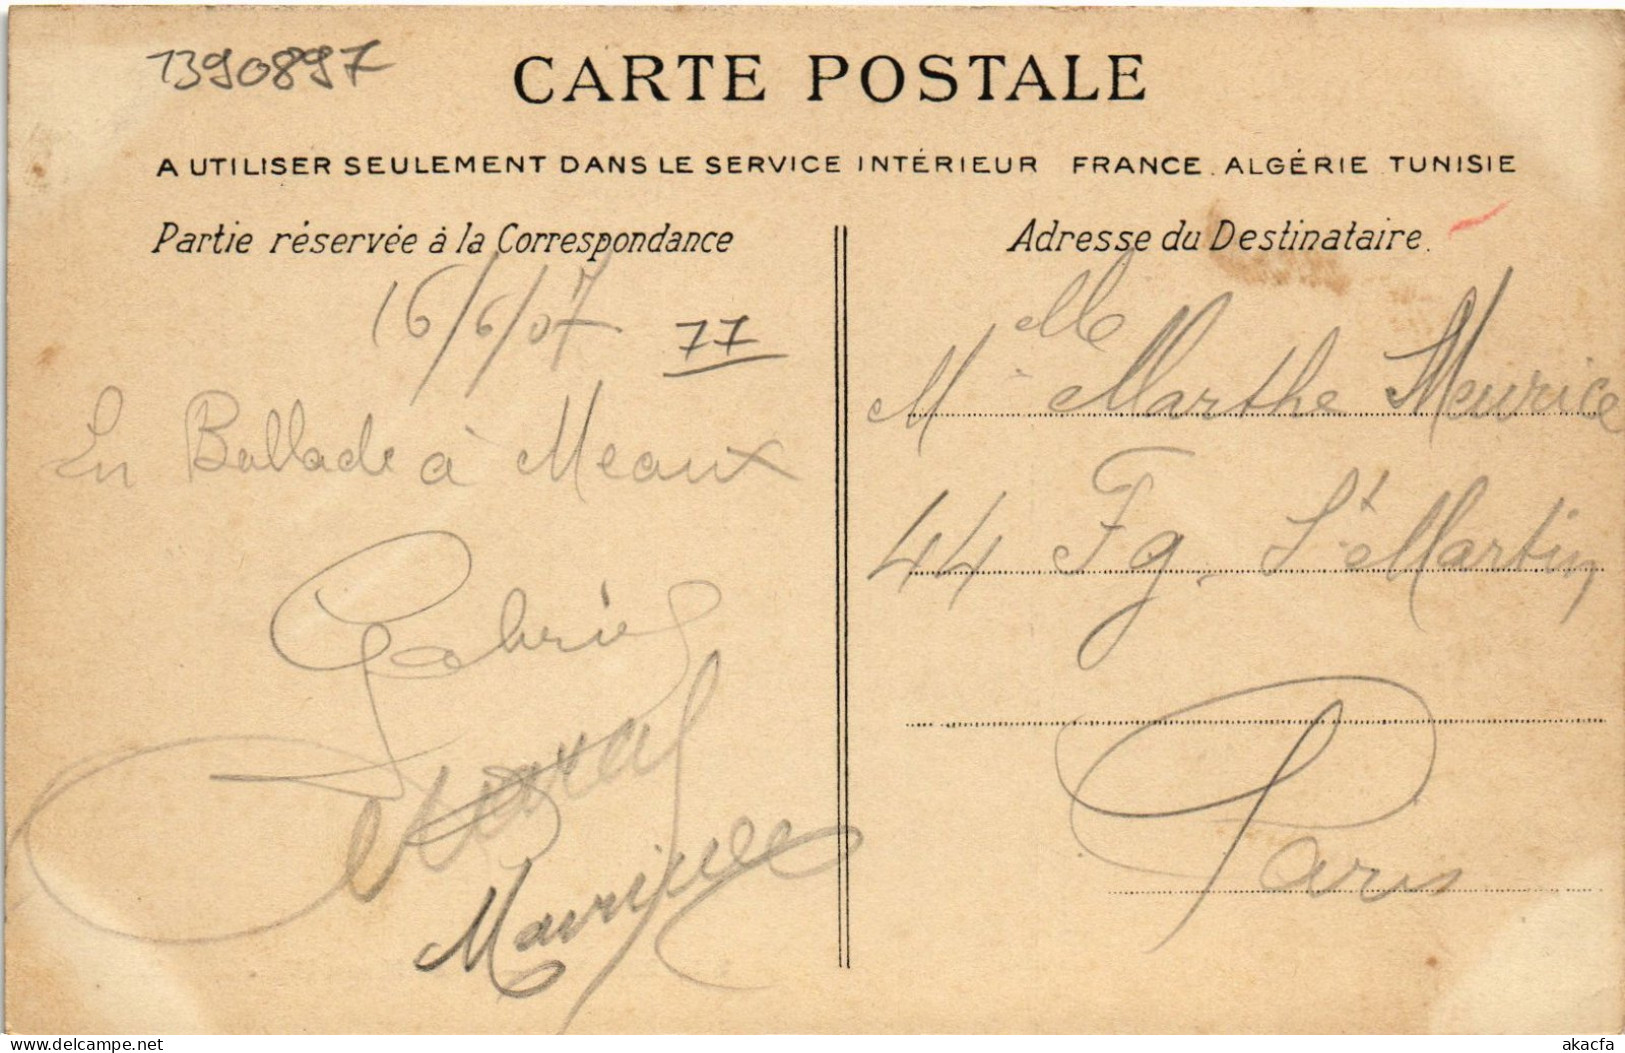 1390897
CARTE POSTALE
A UTILISER SEULEMENT DANS LE SERVICE INTÉRIEUR FRANCE. ALGÉRIE TUNISIE
Partie réservée à la Correspondance
16/6/07 77
En Ballade à Meaux
Gabriel
Maurice
Adresse du Destinataire.
Melle Marthe Meurice
44 Fg. St Martin
Paris
delcampe.net
akacfa